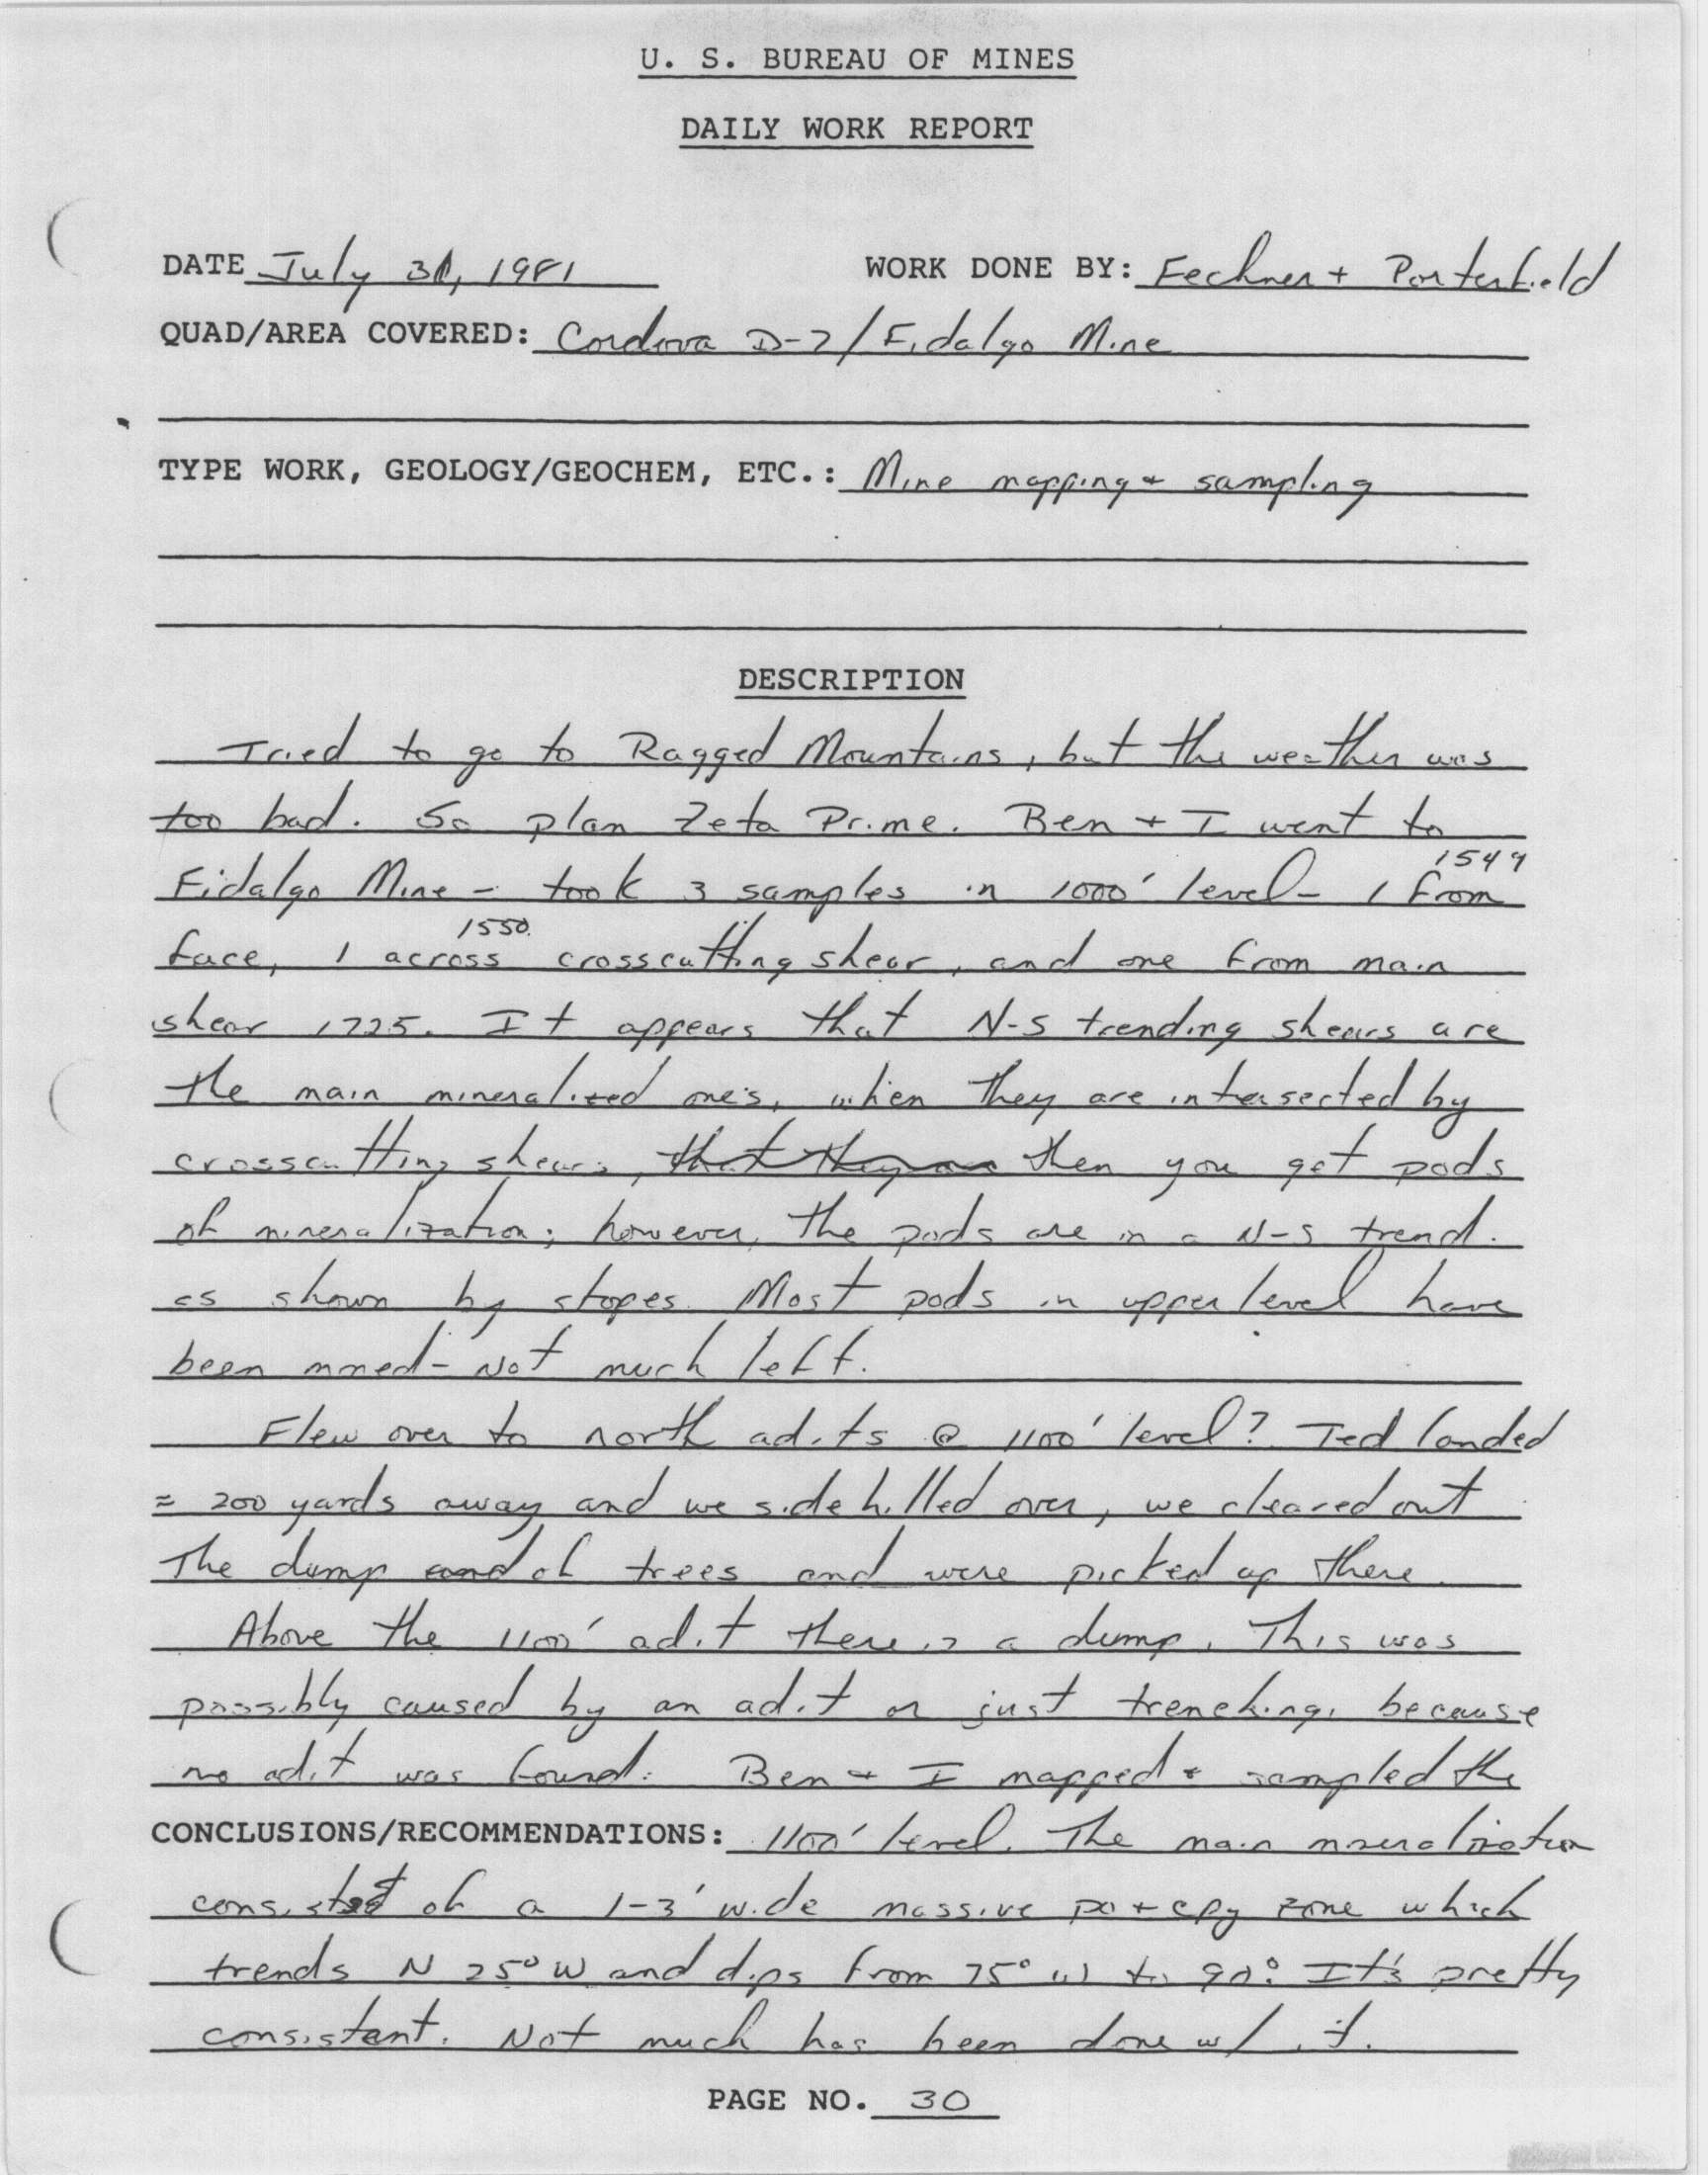 U. S. BUREAU OF MINES
DAILY WORK REPORT
DATE July 31, 1981 WORK DONE BY: Fechner + Porterfield
QUAD/AREA COVERED: Cordova D-7/Fidalgo Mine
TYPE WORK, GEOLOGY/GEOCHEM, ETC.: Mine mapping + sampling
DESCRIPTION
Tried to go to Ragged Mountains, but the weather was
too bad. So plan Zeta Prime. Ben + I went to
1549
Fidalgo Mine - took 3 samples in 1000' level - 1 from
1550
face, 1 across crosscutting shear, and one from main
shear 1725. It appears that N-S trending shears are
the main mineralized one's, when they are intersected by
crosscutting shears, that they are then you get pods
of mineralization; however, the pods are in a N-S trend.
as shown by stopes. Most pods in upper level have
been mined - Not much left.
Flew over to north adits @ 1100' level? Ted landed
≈ 200 yards away and we sidehilled over, we cleared out
The dump and of trees and were picked up there.
Above the 1100' adit there is a dump. This was
possibly caused by an adit or just trenching, because
no adit was found. Ben + I mapped + sampled the
CONCLUSIONS/RECOMMENDATIONS: 1100' level. The main mineralization
consisted of a 1-3' wide massive po + cpy zone which
trends N 25° W and dips from 75° W to 90°. It's pretty
consistant. Not much has been done w/ it.
PAGE NO. 30